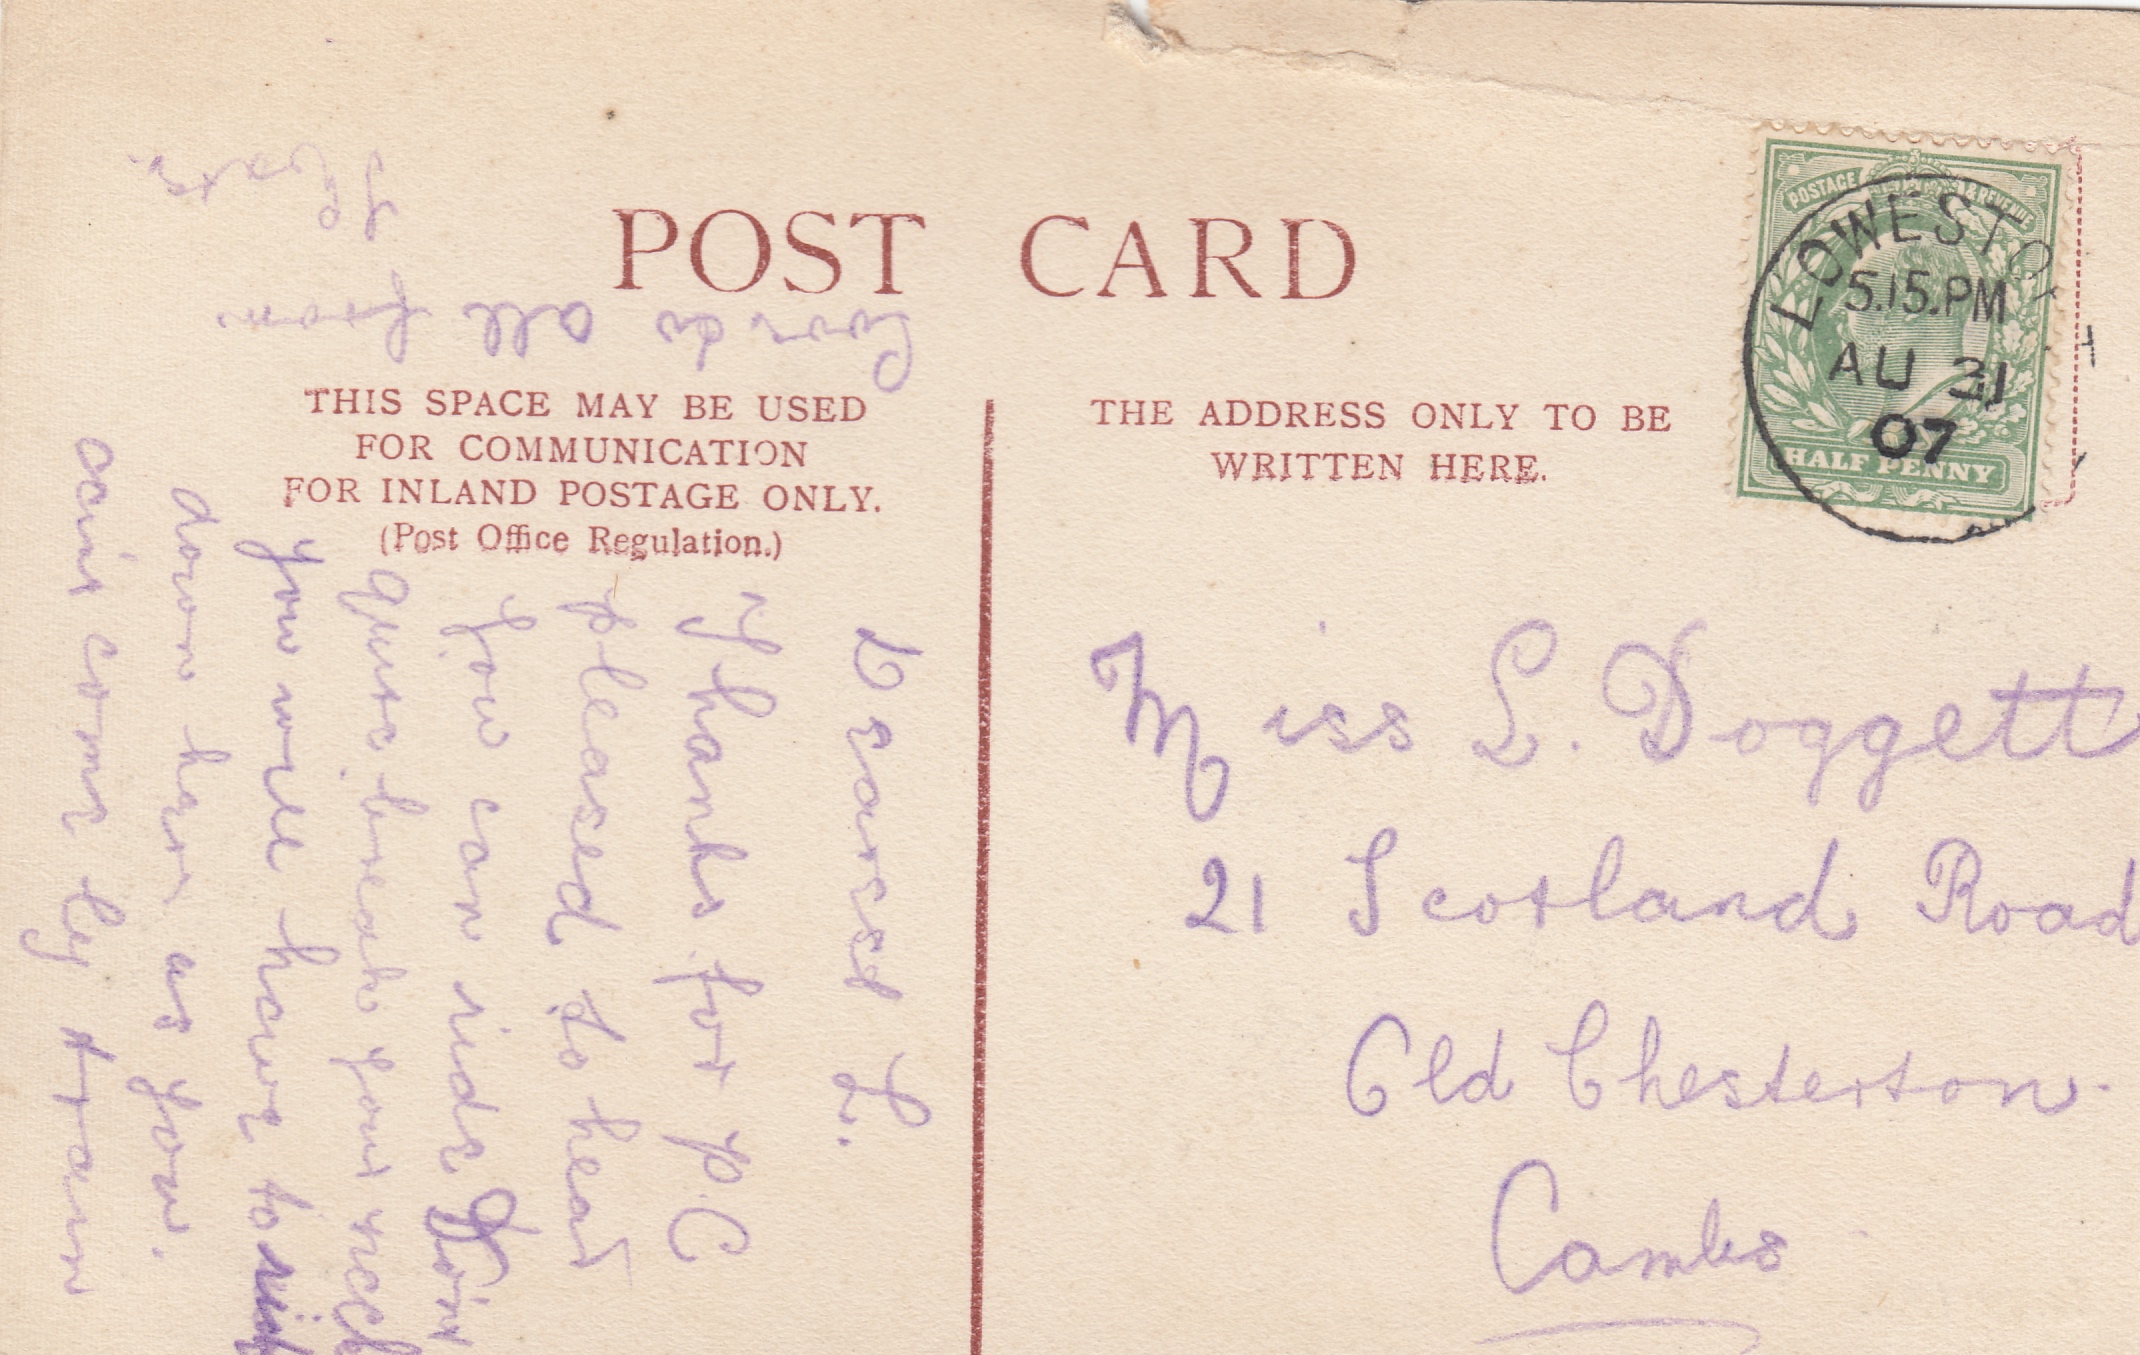 POST CARD
THIS SPACE MAY BE USED
FOR COMMUNICATION
FOR INLAND POSTAGE ONLY.
(Post Office Regulation.)
THE ADDRESS ONLY TO BE
WRITTEN HERE.
POSTAGE & REVENUE
HALF PENNY
LOWESTO
5.15.PM
AU 31
07
Miss L. Doggett
21 Scotland Road
Old Chesterton.
Cambs
Dearest L.
Thanks for P.C
pleased to hear
you can ride Don't
quite break your neck
you will have to
down here as you.
can't come by train
Love to all from